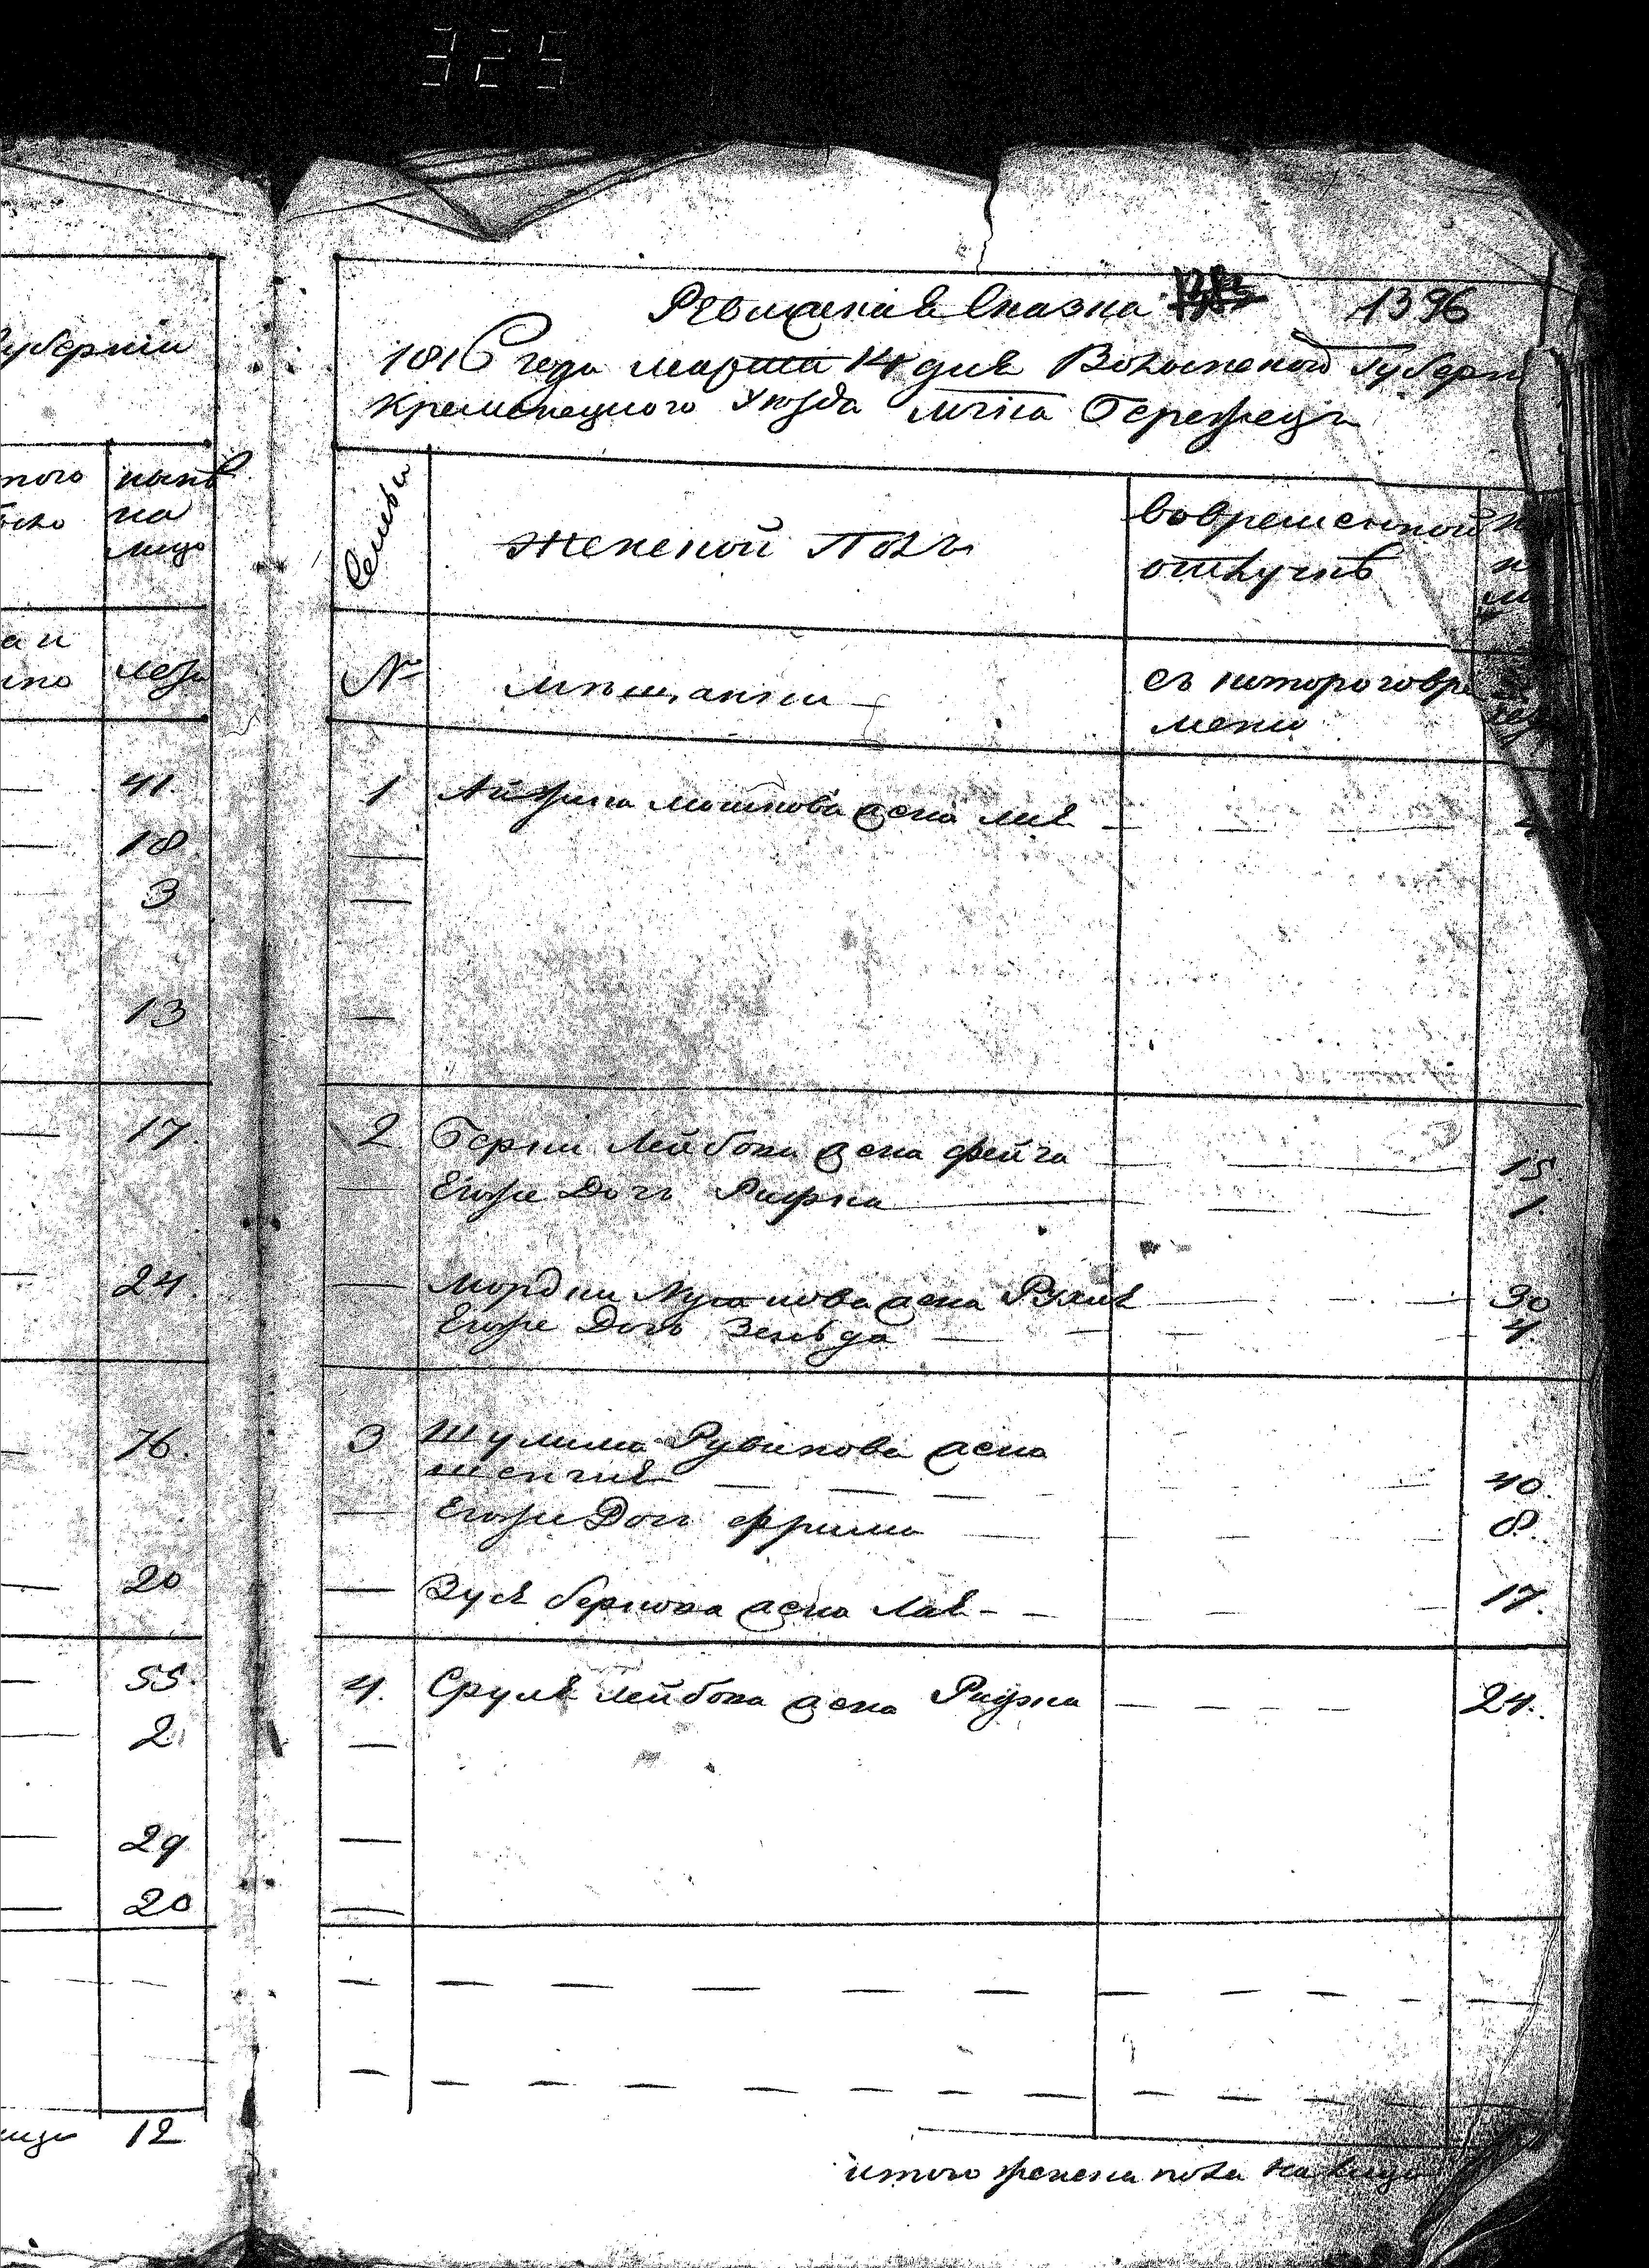 325
Губерніи
ныне
на
лицо
лета
41.
18.
3
13
17.
24.
76.
20
55.
2.
29
20
12
Ревижская Сказка 1396
1816 года марта 14 дня Волынской Губерн
Кременецкого Уезда мчка Бережецъ
Семьи
Женской Полъ
во временной
отлучкѣ
№
мещанки
съ которого вре
мени
1 Айзика мошкова жена
2 Берки Лейбова жена фейга 15.
Егоже Дочь Рифка 1.
Мордки жена Рухля 30
Егоже Дочь Зельда 4.
3 Шулима Рувинова жена
шенгля 40.
Егоже Дочь фрима 8.
Зуся беркова жена Лая 17.
4. Сруля лейбова жена Рифка 24.
итого женска пола на лицо